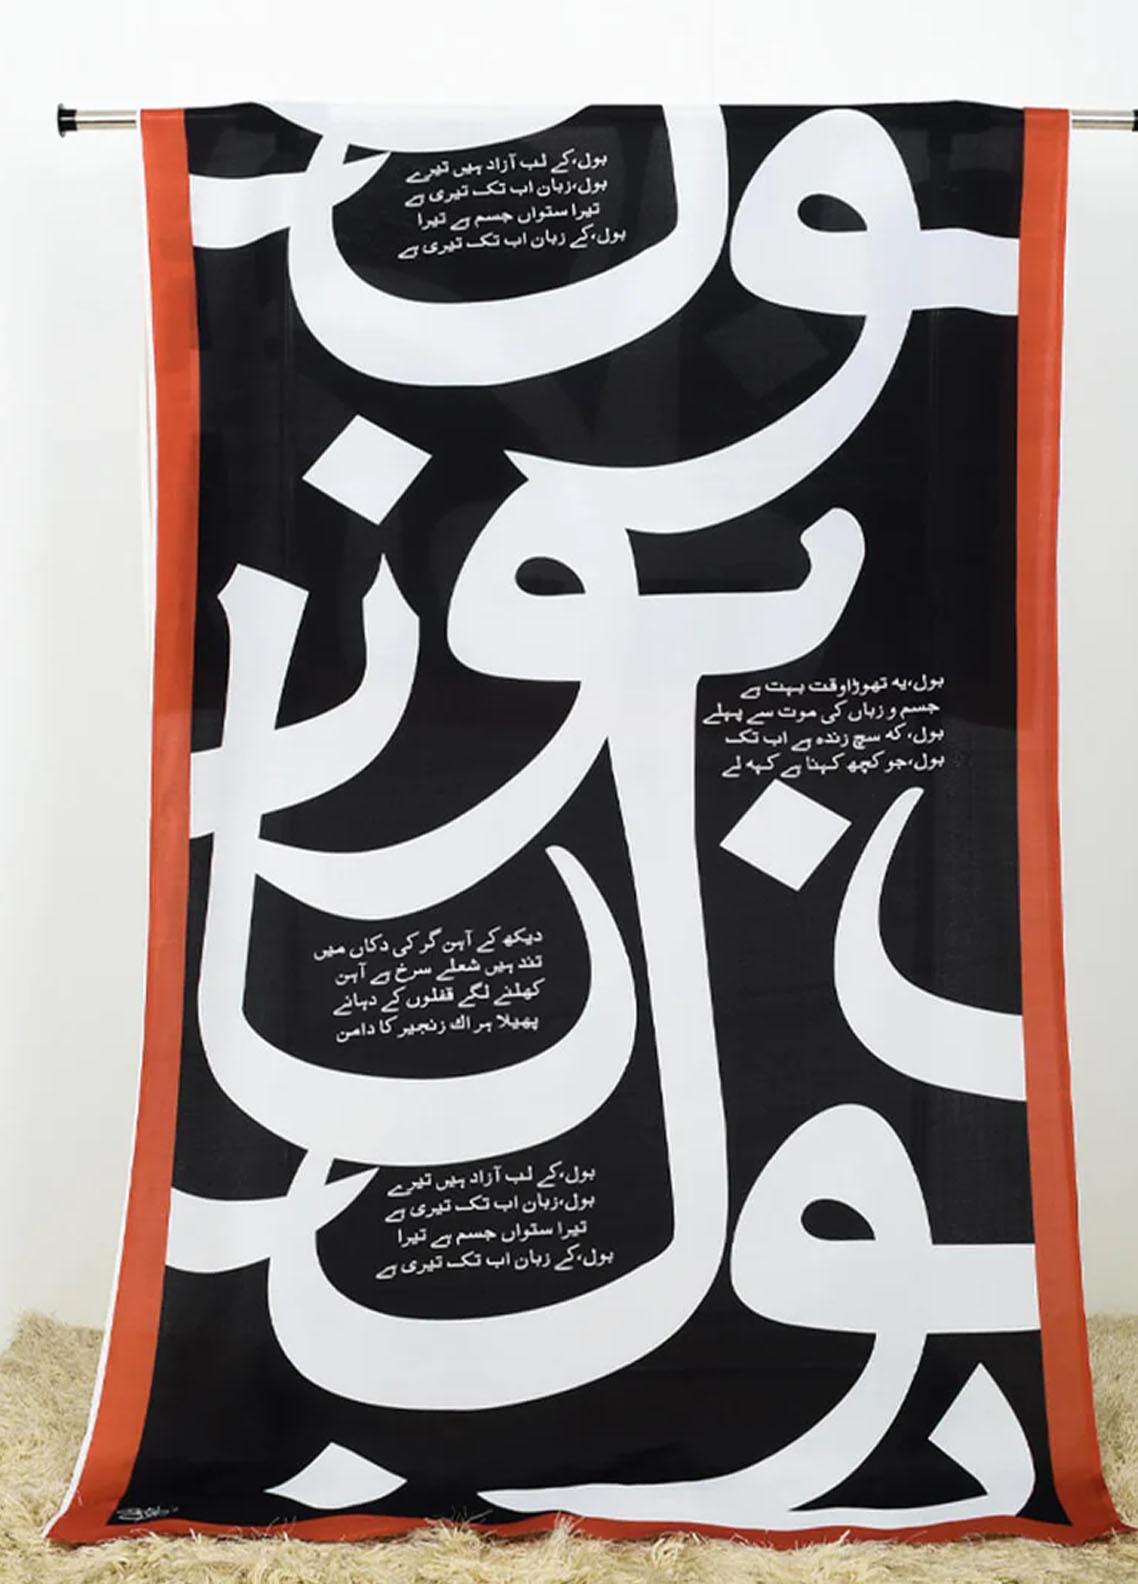 بول،کے لب آزاد ہیں تیرے
بول،زبان اب تک تیری ہے
تیرا ستواں جسم ہے تیرا
بول،کے زبان اب تک تیری ہے
بول
بول،یہ تھوڑا وقت بہت ہے
جسم و زباں کی موت سے پہلے
بول،کہ سچ زندہ ہے اب تک
بول،جو کچھ کہنا ہے کہہ لے
دیکھ کے آہن گر کی دکاں میں
تند ہیں شعلے سرخ ہے آہن
کھلنے لگے قفلوں کے دہانے
پھیلا ہر اك زنجیر کا دامن
بول،کے لب آزاد ہیں تیرے
بول،زبان اب تک تیری ہے
تیرا ستواں جسم ہے تیرا
بول،کے زبان اب تک تیری ہے
بول